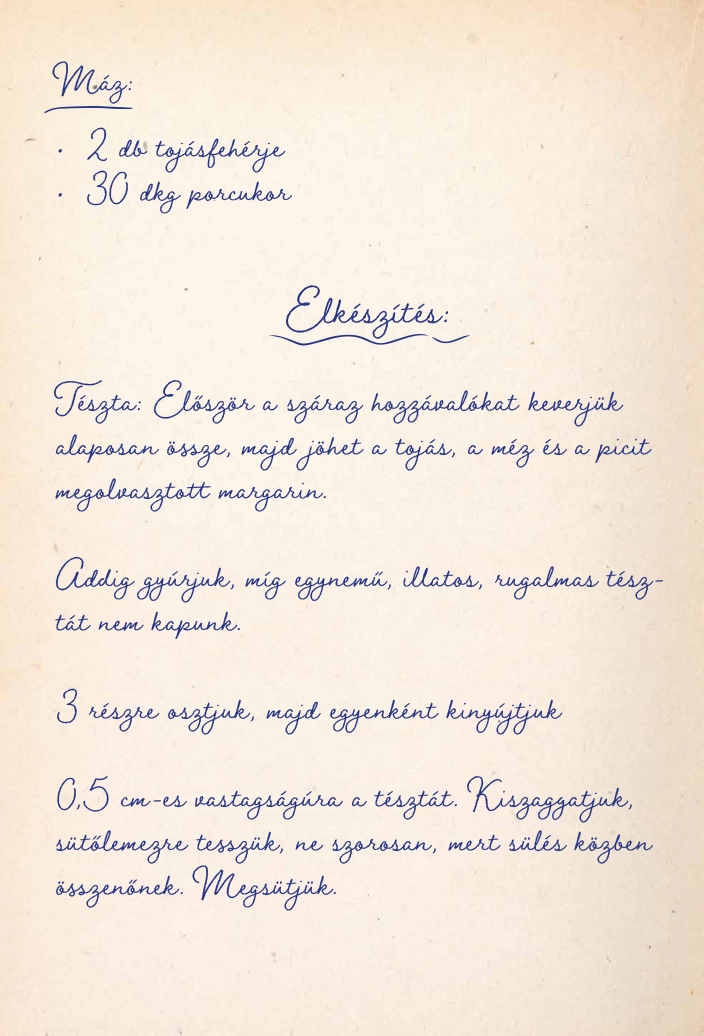 Máz:
· 2 db tojásfehérje
· 30 dkg porcukor
Elkészítés:
Tészta: Először a száraz hozzávalókat keverjük
alaposan össze, majd jöhet a tojás, a méz és a picit
megolvasztott margarin.
Addig gyúrjuk, míg egynemű, illatos, rugalmas tész-
tát nem kapunk.
3 részre osztjuk, majd egyenként kinyújtjuk
0,5 cm-es vastagságúra a tésztát. Kiszaggatjuk,
sütőlemezre tesszük, ne szorosan, mert sülés közben
összenőnek. Megsütjük.